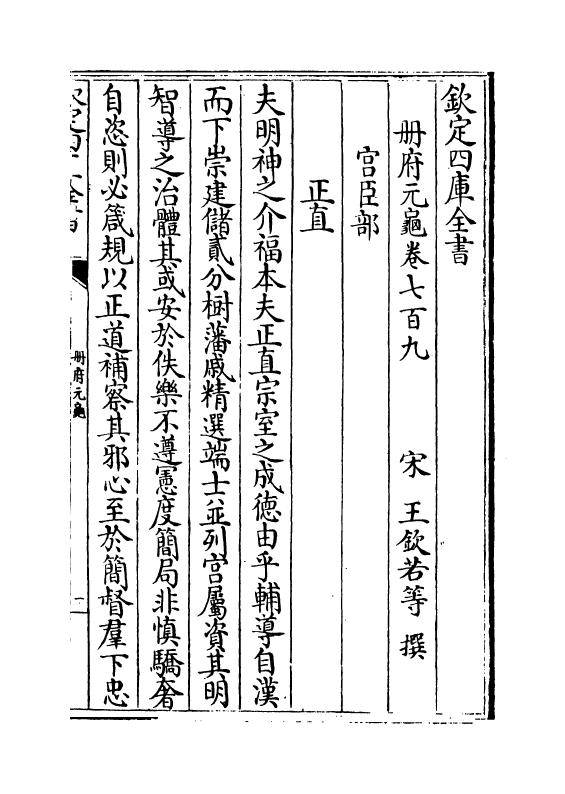 欽定四庫全書
册府元龜卷七百九　宋　王欽若等　撰
宫臣部
正直
夫明神之介福本夫正直宗室之成德由乎輔導自漢
而下崇建儲貳分樹藩戚精選端士並列宫屬資其明
智導之治體其或安於佚樂不遵憲度簡局非慎驕奢
自恣則必箴規以正道補察其邪心至於簡督羣下忠
册府元龜
一